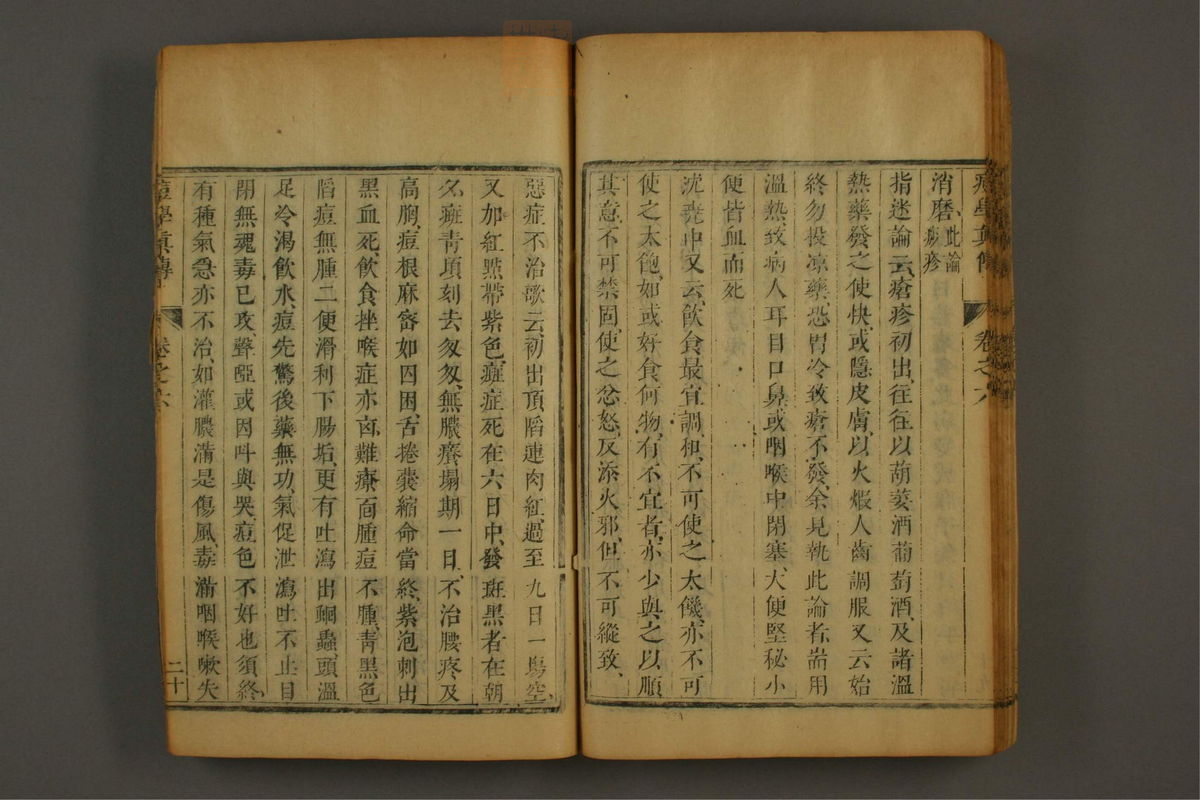 痘學真傳 卷之六
消磨、此論痲疹
指迷論云、瘡疹初出、往往以葫荽酒葡萄酒、及諸溫
熱藥發之使快、或隱皮膚、以火煆人齒調服、又云始
終勿投凉藥、恐胃冷致瘡不發、余見執此論者、耑用
溫熱、致病人耳目口鼻或咽喉中閉塞、大便堅秘小
便皆血而死
沈堯中又云、飲食最宜調和、不可使之太饑、亦不可
使之太飽、如或好食何物、有不宜者、亦少與之以順
其意、不可禁固、使之忿怒、反添火邪、但不可縱致、
惡症不治歌云、初出頂䧟連肉紅、過至九日一塲空、
又加紅㸃帶紫色、症死在六日中、發斑黑者在朝
夕、斑靑頃刻去匆匆、無膿癢塌期一日、不治腰疼及
高胸、痘根麻宻如因困、舌捲囊縮命當終、紫泡刺出
黑血死、飲食挫喉症亦凶、難療面腫痘不腫、靑黑色
䧟痘無腫、二便滑利下腸垢、更有吐瀉出蛔蟲、頭溫
足冷渴飲水、痘先驚後藥無功、氣促泄瀉吐不止、目
閉無魂毒已攻、聲啞或因呌與哭、痘色不好也須終、
有種氣急亦不治、如灌膿滿是傷風、毒滿咽喉嗽失
痘學眞傳 卷之六 二十